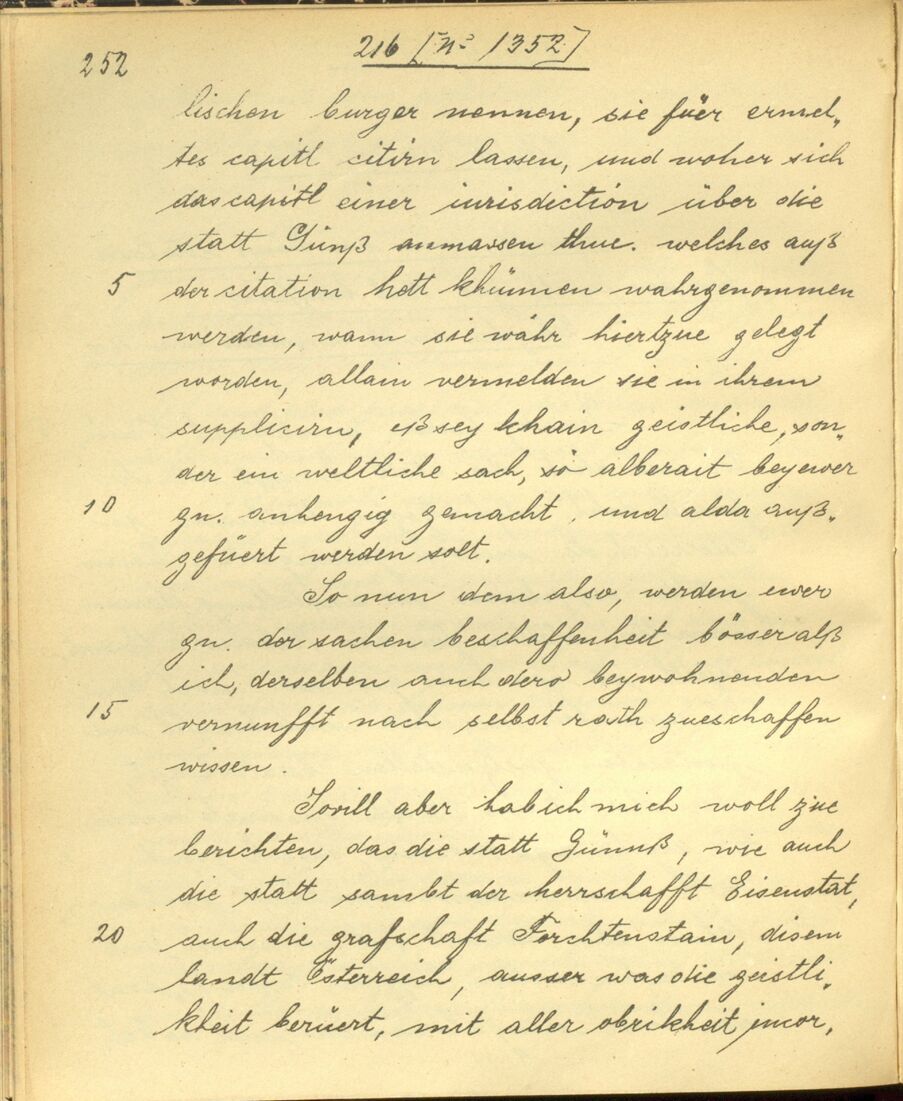 252
216 [No 1352]
lischen burger nennen, sie füer ermel„
tes capitl citirn lassen, und woher sich
das capitl einer iurisdiction über die
statt Günß anmassen thue. welches auß
5 der citation hett khünnen wahrgenommen
werden, wann sie währ hiertzue gelegt
worden, allain vermelden sie in ihrem
supplicirn, eß sey khain geistliche, son„
der ein weltliche sach, so alberait bey ewer
10 gn. anhengig gemacht, und alda auß„
gefüert werden solt.
So nun dem also, werden ewer
gn. der sachen beschaffenheit bösser alß
ich, derselben auch dero beywohnenden
15 vernunfft nach selbst rath zueschaffen
wissen.
Sovill aber hab ich mich woll zue
berichten, das die statt Günnß, wie auch
die statt sambt der herrschafft Eisenstat,
20 auch die grafschaft Forchtenstain, disem
landt Österreich, ausser was die geistli„
kheit berüert, mit aller obrikheit incor„